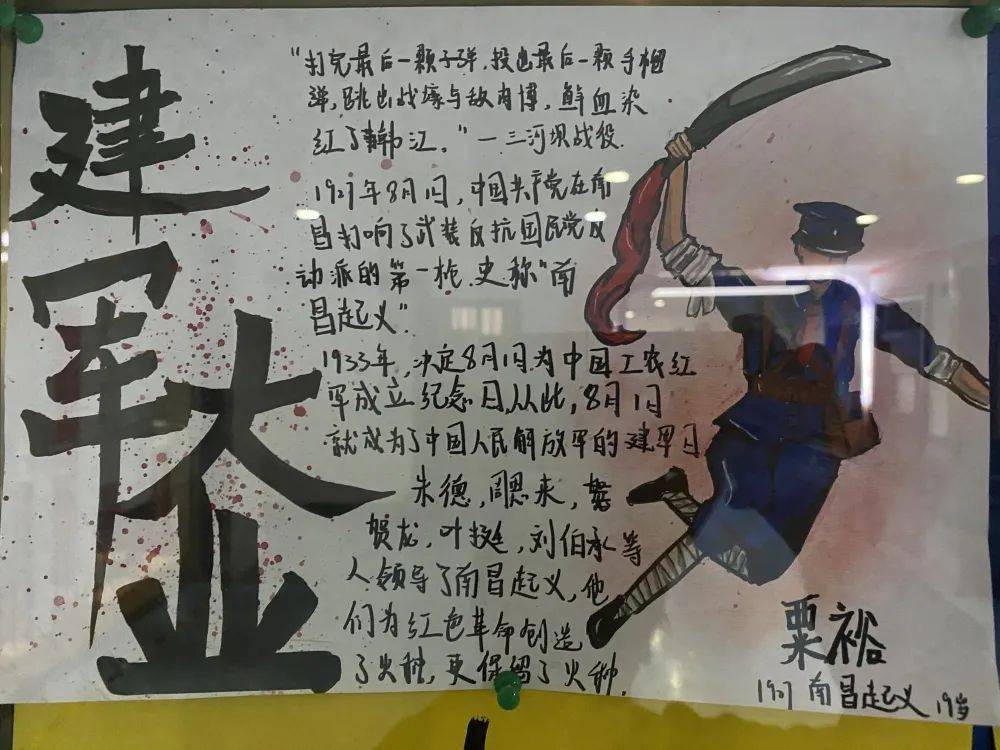 建军大业
“打完最后一颗子弹，投出最后一颗手榴
弹，跳出战壕与敌肉博，鲜血染
红了韩江。”—三河坝战役.
1927年8月1日，中国共产党在南
昌打响了武装反抗国民党反
动派的第一枪，史称“南
昌起义”.
1933年，决定8月1日为中国工农红
军成立纪念日，从此，8月1日
就成为了中国人民解放军的建军日
朱德，周恩来，
贺龙，叶挺，刘伯承等
人领导了南昌起义，他
们为红色革命创造
了火种，更保留了火种.
粟裕
1927 南昌起义 19岁